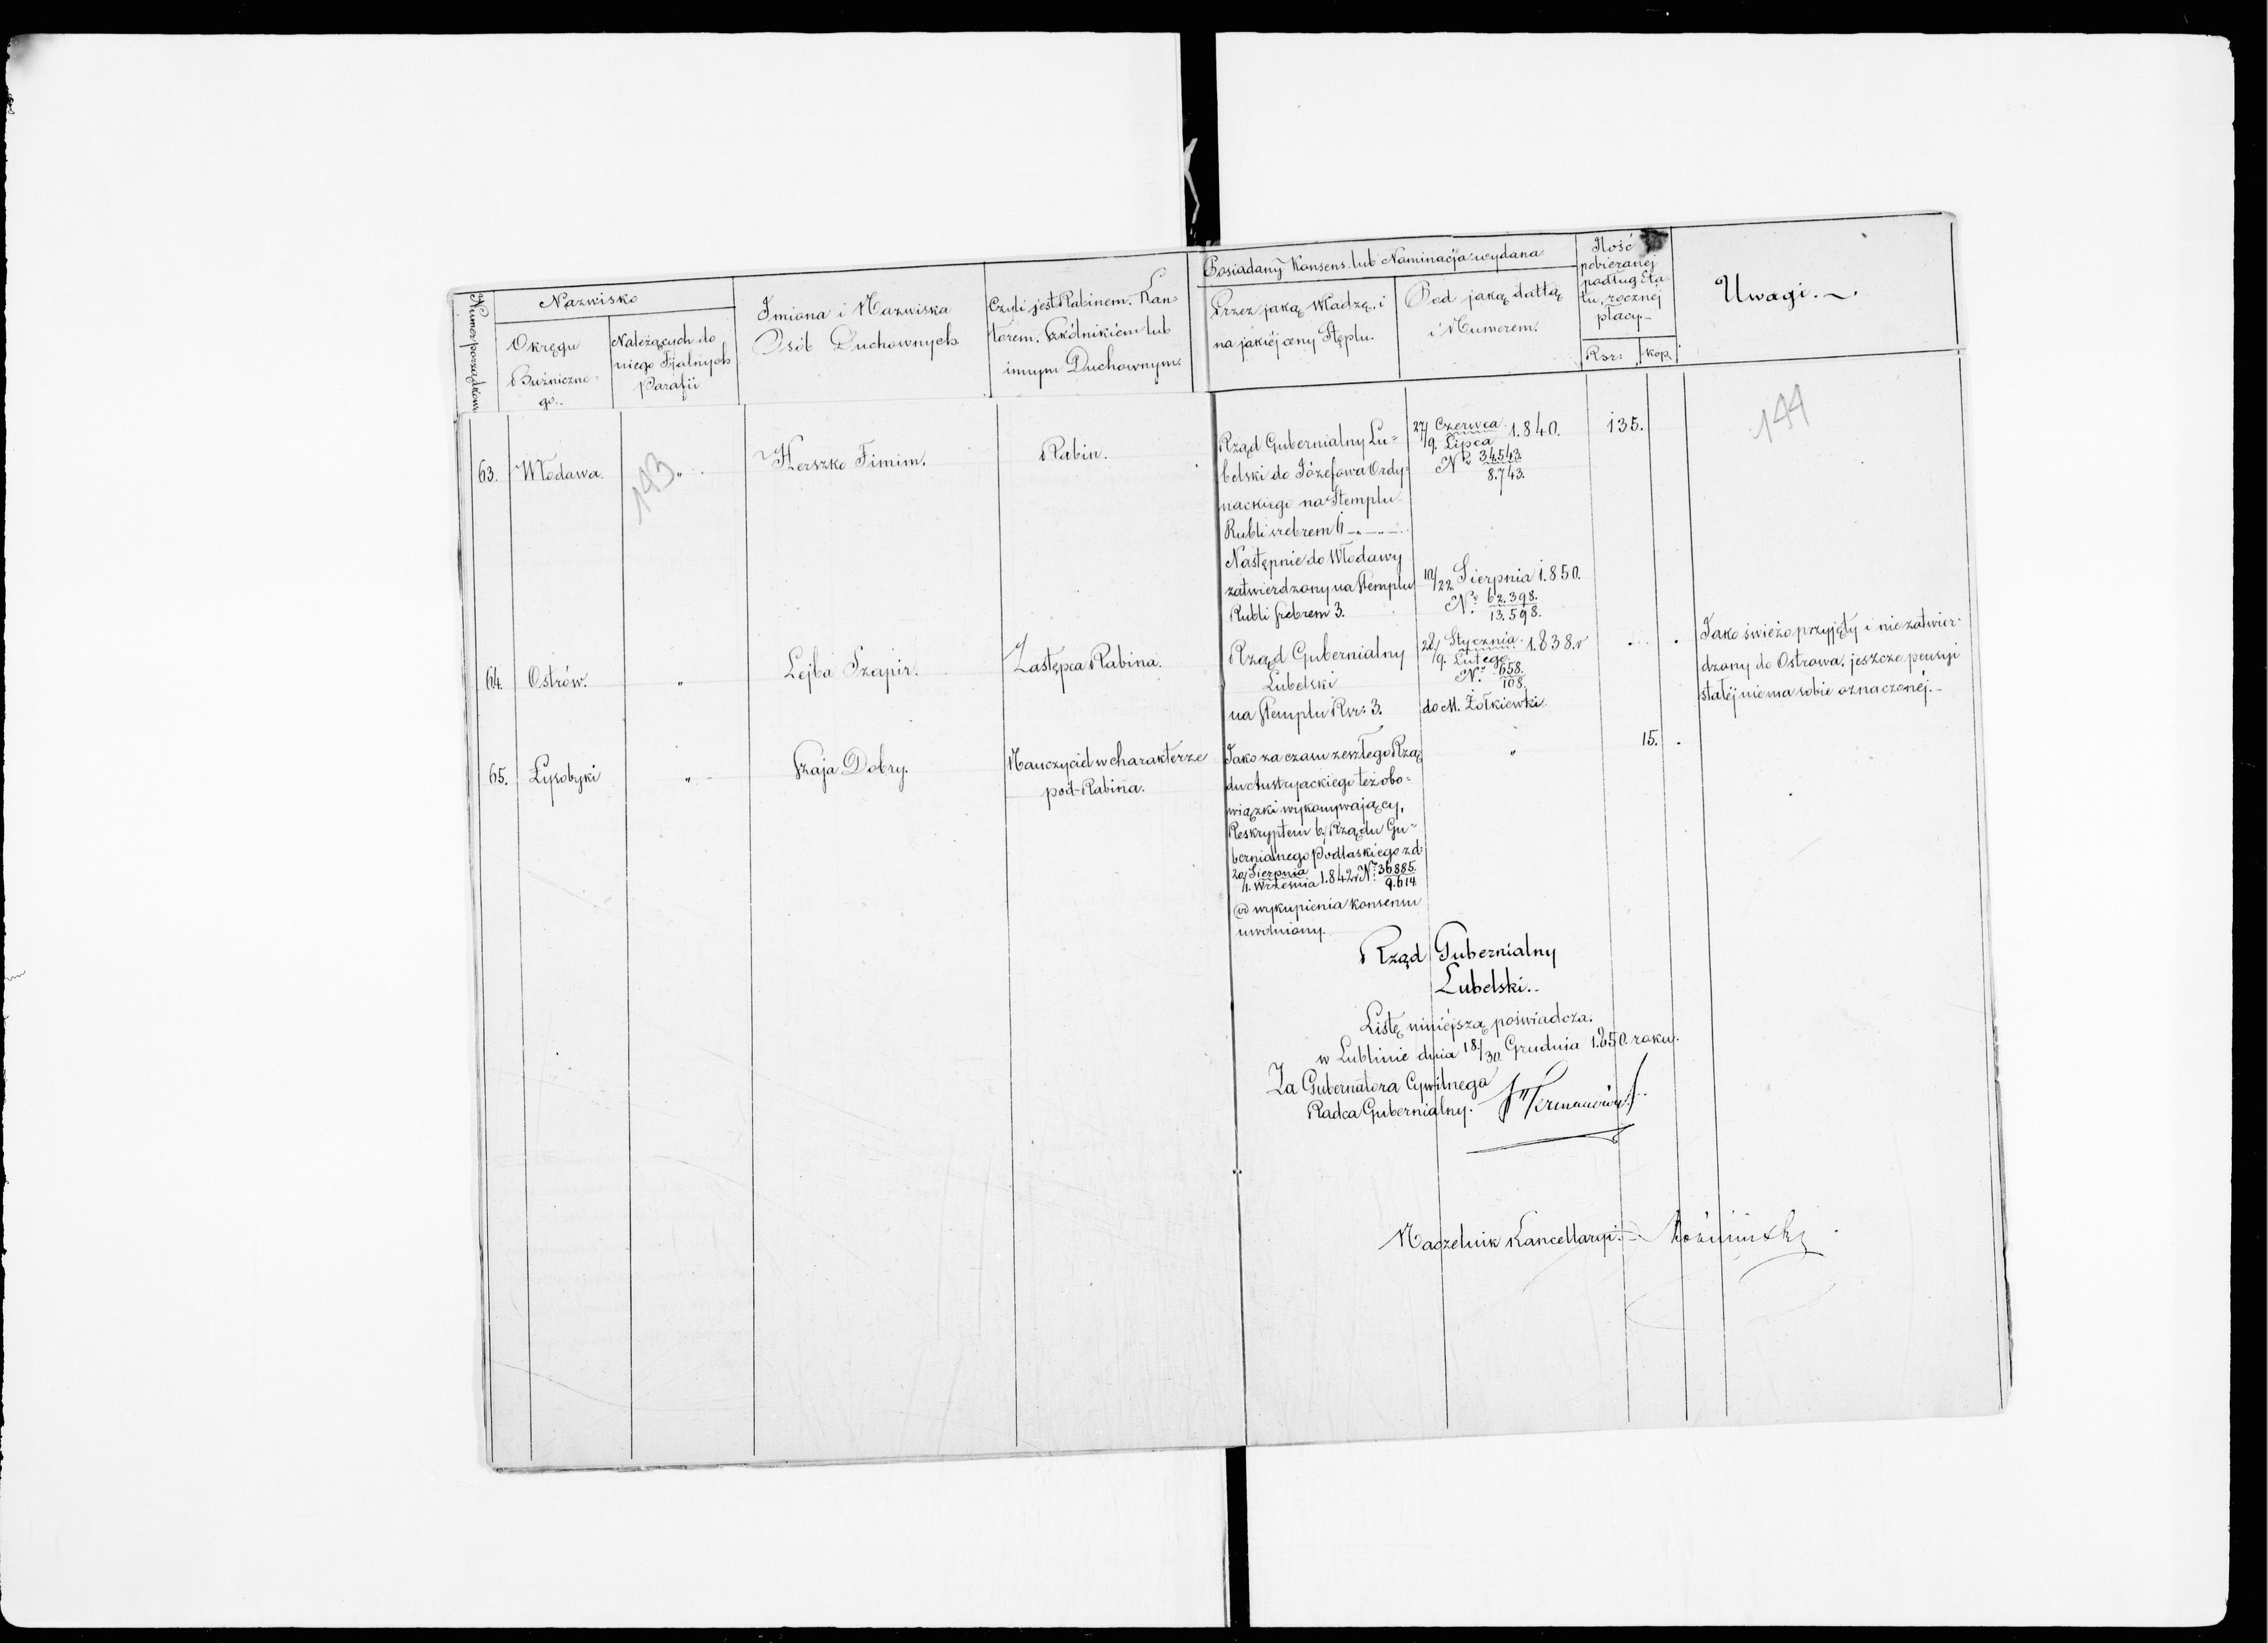 Numer porządkowy
Nazwisko
Okręgu
Bużniczne-
go..
Należących do
niego Fijalnych
Parafii
Imiona i Nazwiska
Osób Duchownych
Czyli jest Rabinem. Kan-
torem. Szkólnikiem lub
innym Duchownym.
Posiadany Konsens lub Nominacja wydana
Przez jaką Władzę, i
na jakiéj ceny Stęplu.
Pod jaką dattą
i Numerem.
Ilość
pobieranéj
podług Eta-
tu, rocznéj
płacy.
Rsr:
kop.
Uwagi.
143
144
63.
Włodawa.
"
Herszko Fimim.
Rabin.
Rząd Gubernialny Lu=
belski do Józefowa Ordy=
nackiego na Stemplu
Rubli srebrem 6
27/ Czerwca
/9. Lipca 1.840.
Nr 34.543.
8.743.
135.
Następnie do Włodawy
zatwierdzony na Stemplu
Rubli srebrem 3.
10/22 Sierpnia 1.850.
Nr. 62.398.
13.598.
64.
Ostrów.
"
Lejba Szapir.
Zastępca Rabina.
Rząd Gubernialny
Lubelski
na Stemplu Rsr: 3.
28/ Stycznia
/9. Lutego 1.838. r
Nr. 658.
108.
do M. Żółkiewki.
Jako świeżo przyjęty i nie zatwier-
dzony do Ostrowa. jeszcze pensyi
stałéj niema sobie oznaczonéj.
65.
Łysobyki
"
Szaja Dobry.
Nauczyciel w charakterze
pod-Rabina.
Jako za czasu zeszłego Rzą
du Austryackiego też obo=
wiązki wykonywający,
Reskryptem b. Rządu Gu=
bernialnego Podlaskiego z d:
20/ Sierpnia
/1. Września 1.842 r Nr. 36885.
9.614
od wykupienia konsensu
uwolniony.
"
15.
Rząd Gubernialny
Lubelski..
Listę niniejszą poświadcza.
w Lublinie dnia 18/30. Grudnia 1.850. roku.
Za Gubernatora Cywilnego
Radca Gubernialny.
Naczelnik Kancellaryi.